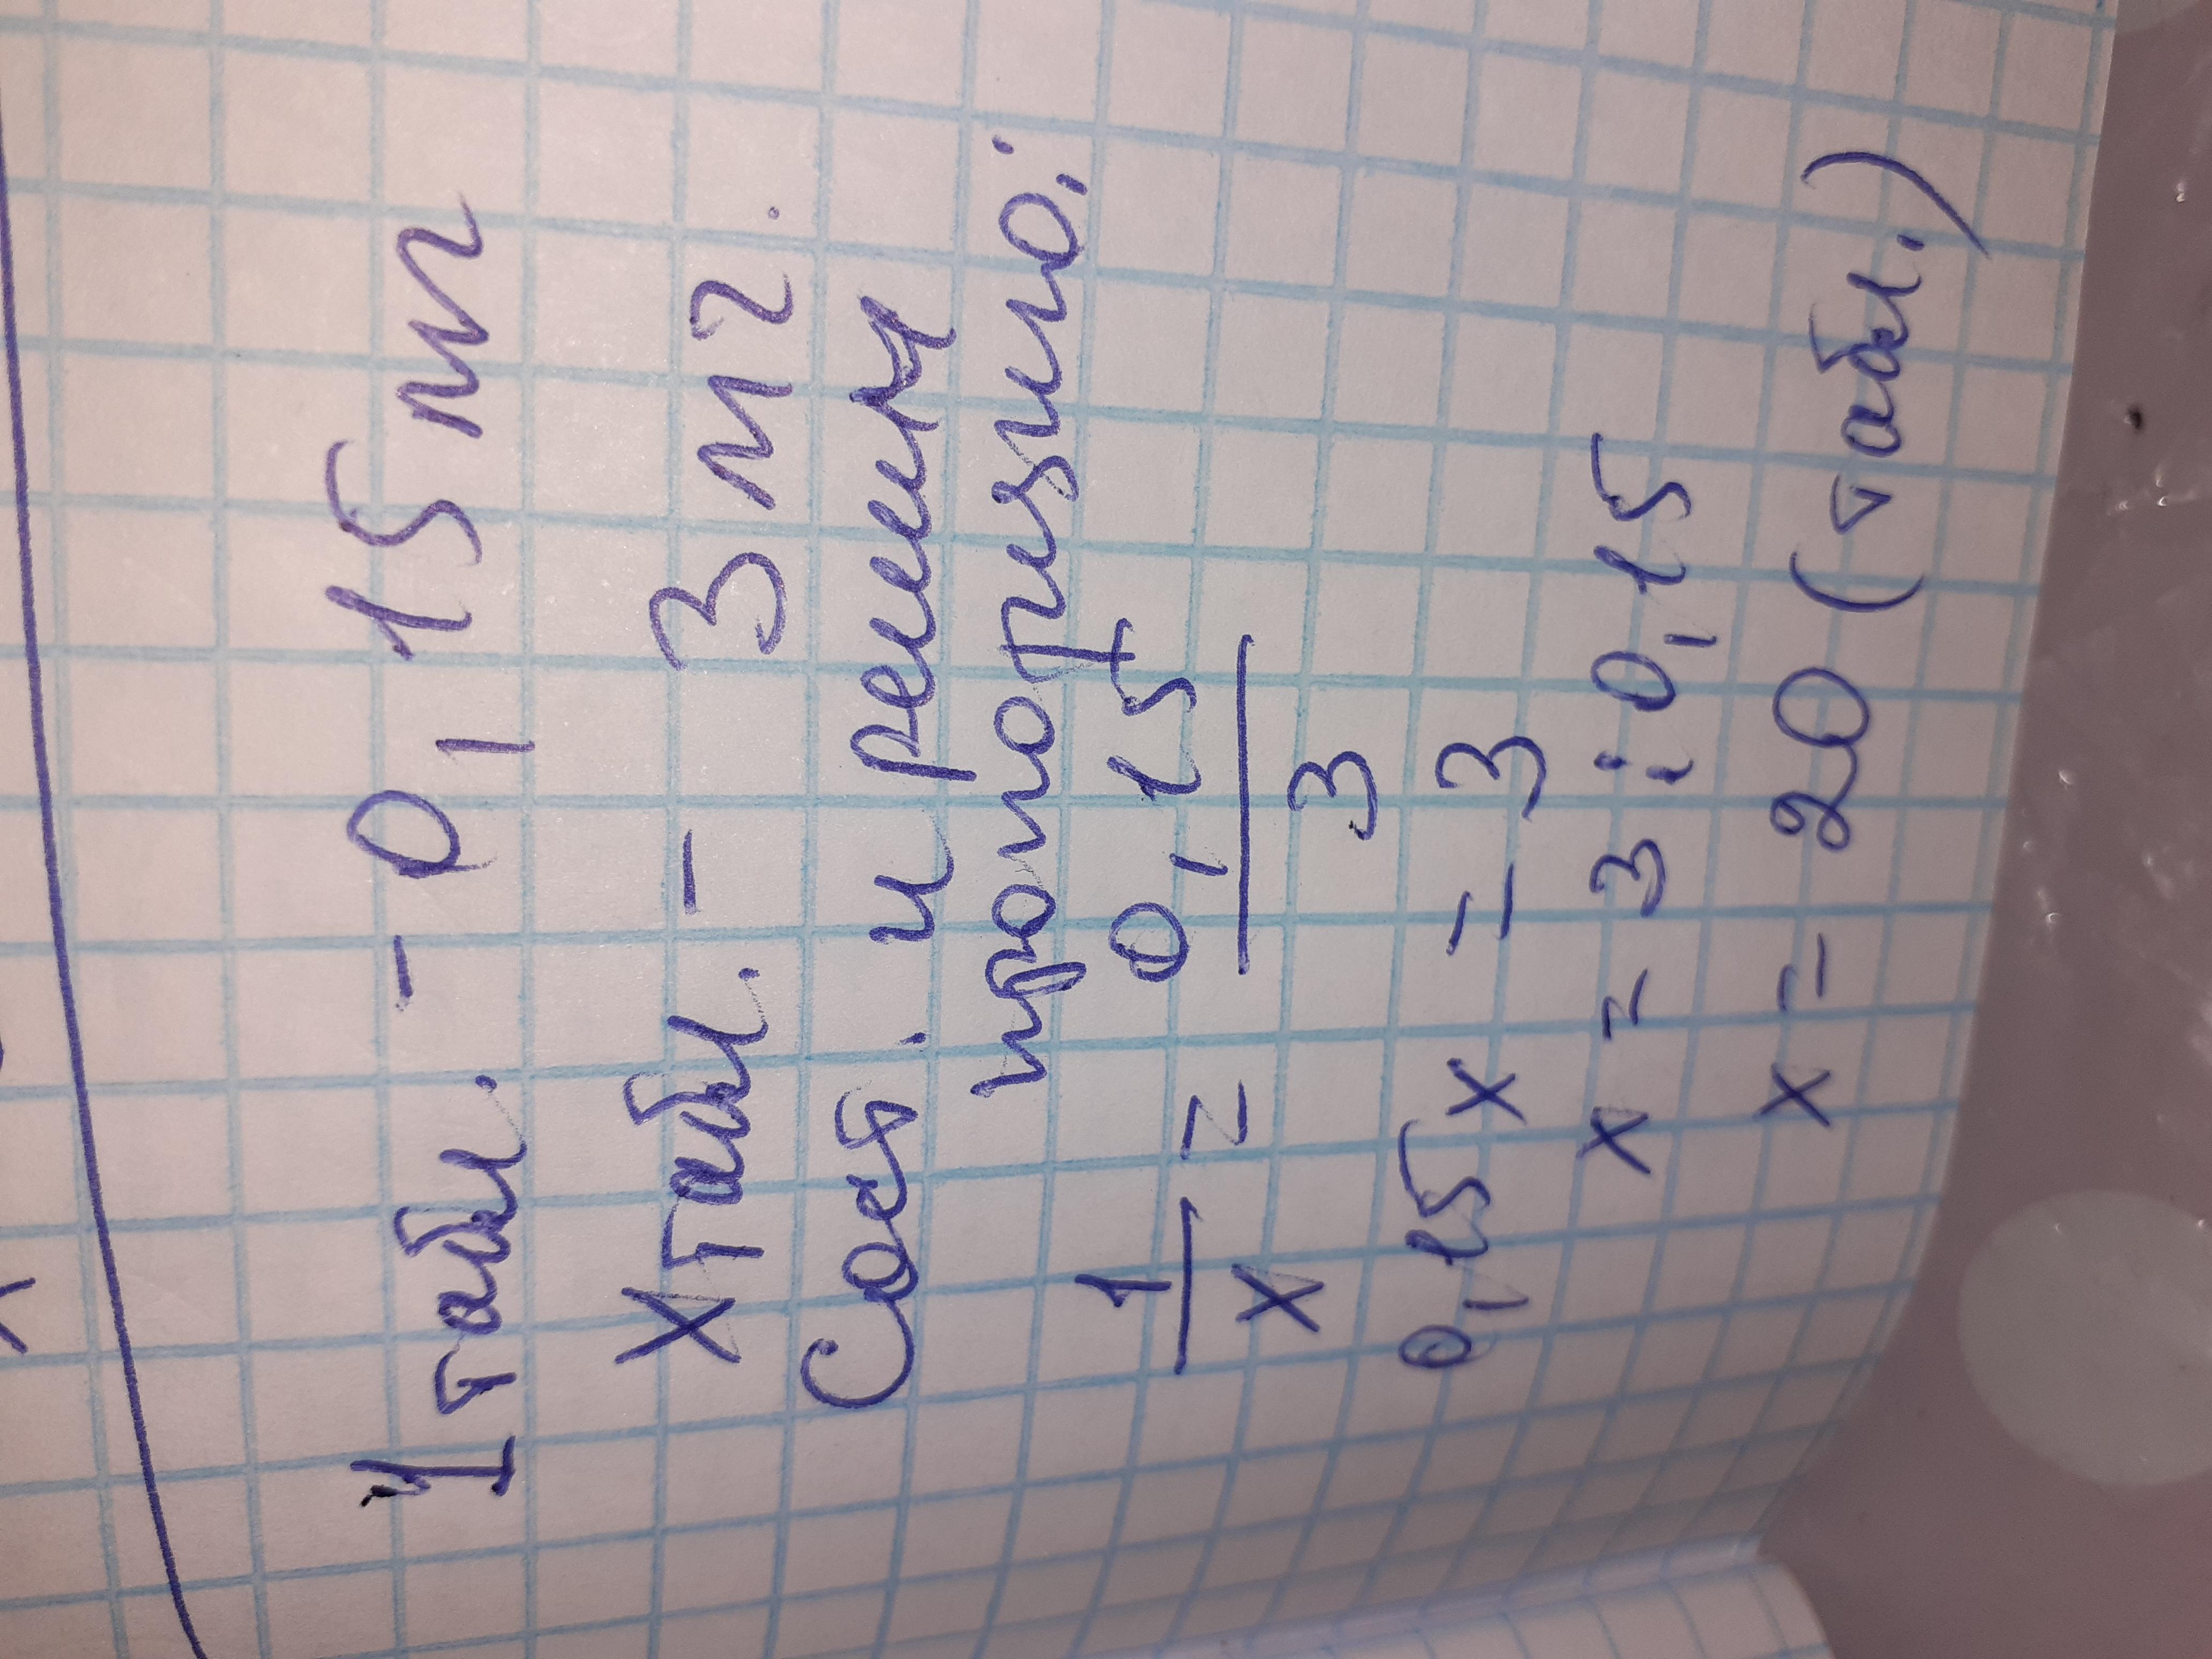 1 табл. - 0,15 мг
X табл. - 3 мг.
Сост. и решим
пропорцию:
1/x = 0,15/3
0,15 x = 3
x = 3 : 0,15
x = 20 (табл.)